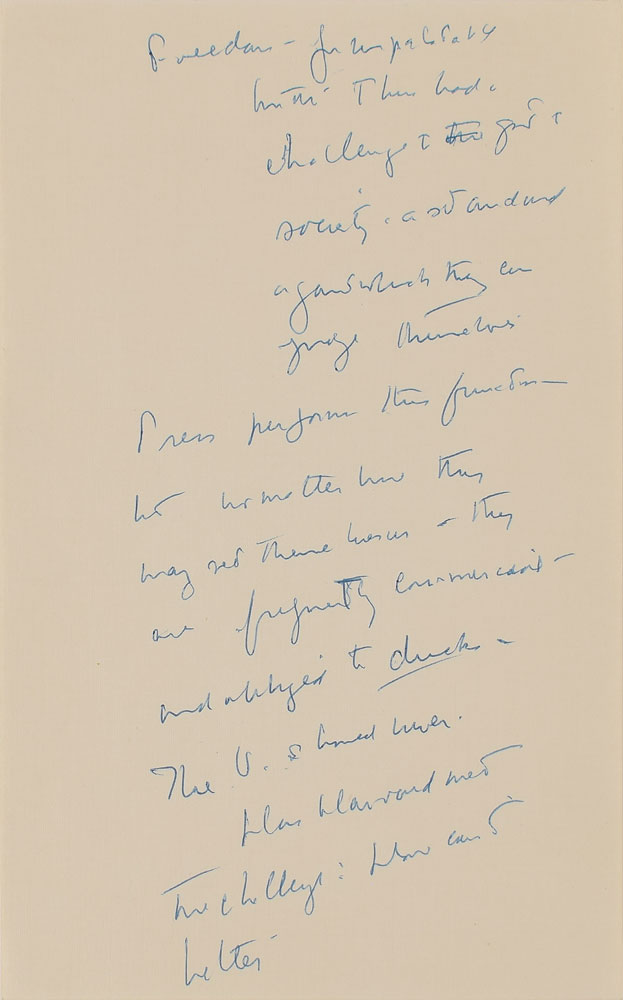 Freedom - for unpalatable
truths. Thus had a
challenge to the gov't &
society. a standard
against which they can
judge themselves
Press perform this function -
but no matter how they
may see themselves - they
are frequently commercial -
and obliged to duck -
The U. should never.
Has Harvard met
The challenge: How can it
better